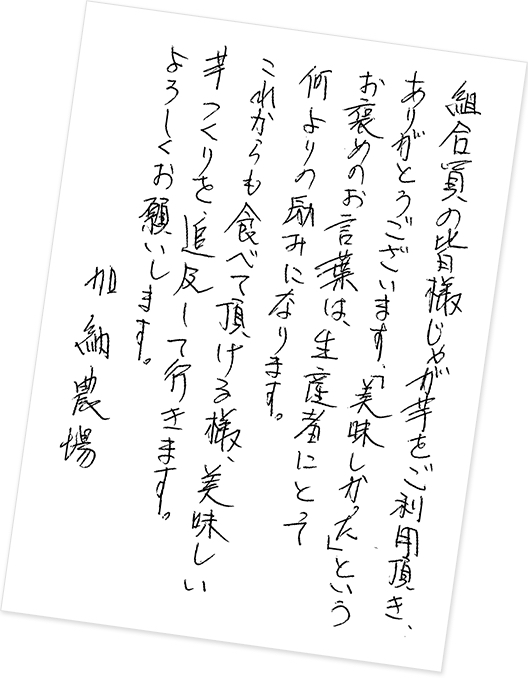 組合員の皆様じゃが芋をご利用頂き、
ありがとうございます。「美味しかった」という
お褒めのお言葉は、生産者にとって
何よりの励みになります。
これからも食べて頂ける様、美味しい
芋つくりを、追反して行きます。
よろしくお願いします。
加納農場